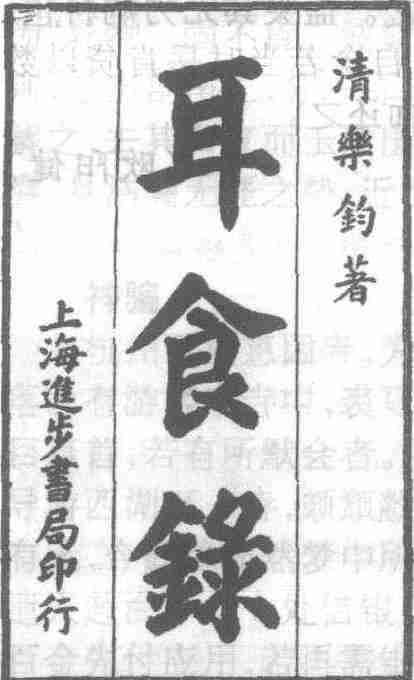 清樂鈞著
耳食錄
上海進步書局印行